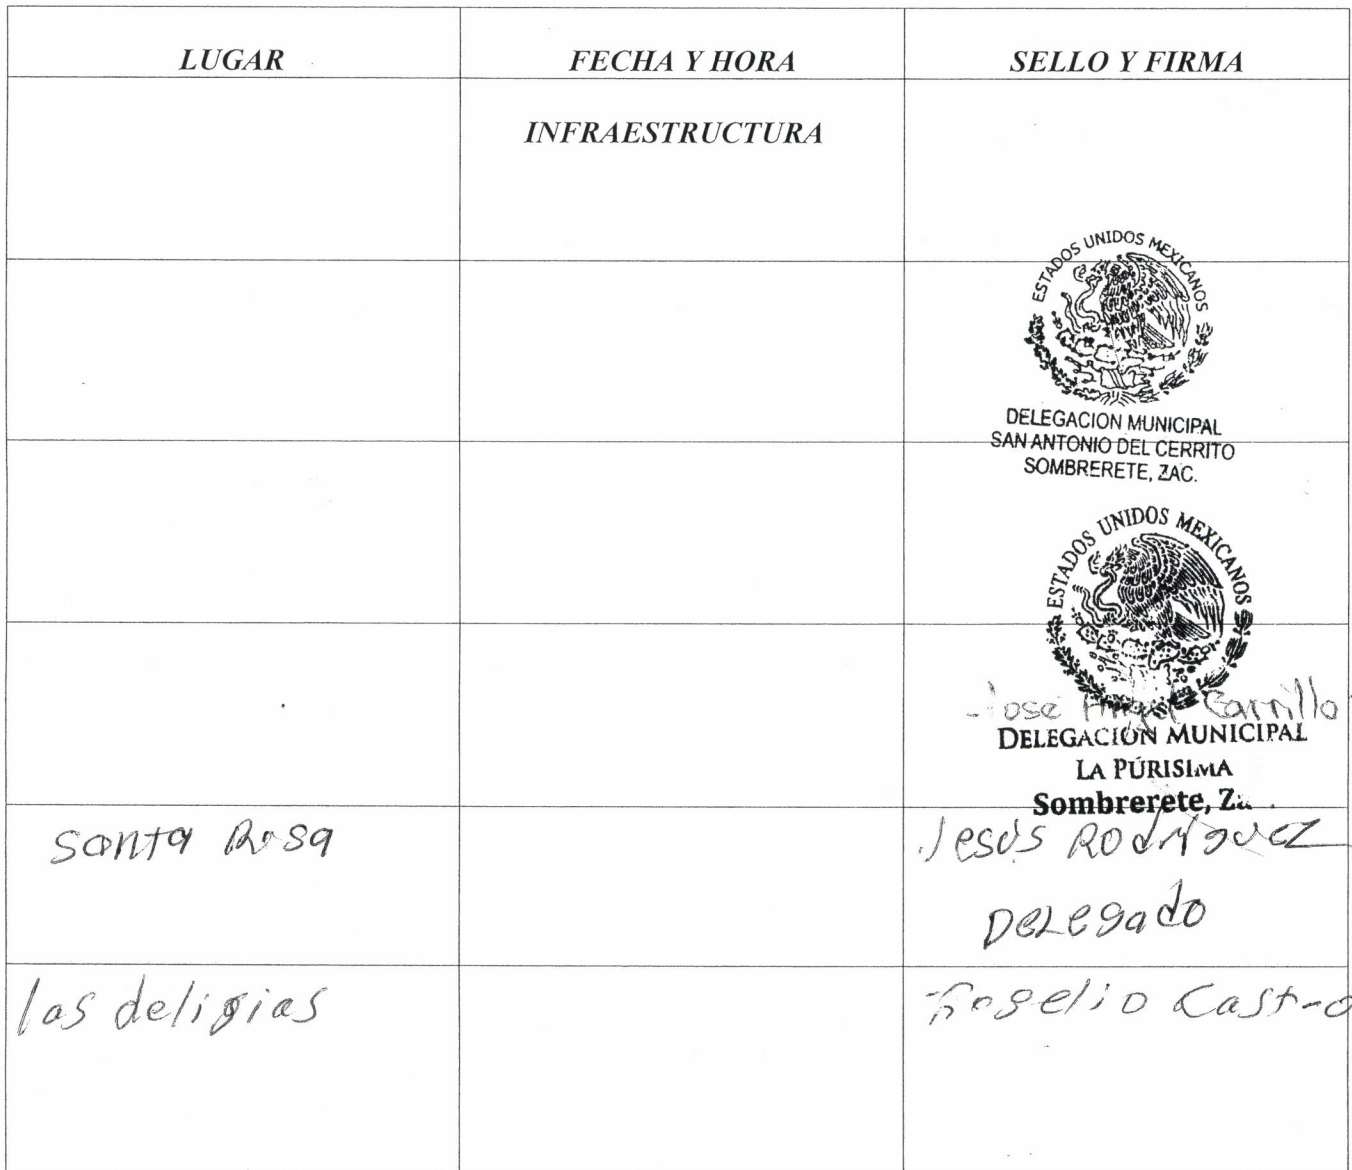 LUGAR FECHA Y HORA SELLO Y FIRMA
INFRAESTRUCTURA
ESTADOS UNIDOS MEXICANOS
DELEGACION MUNICIPAL
SAN ANTONIO DEL CERRITO
SOMBRERETE, ZAC.
ESTADOS UNIDOS MEXICANOS
José Carrillo
DELEGACIÓN MUNICIPAL
LA PÚRISIMA
Sombrerete,
Santa Rosa Jesús Rodríguez
Delegado
las deligias Rogelio Castro